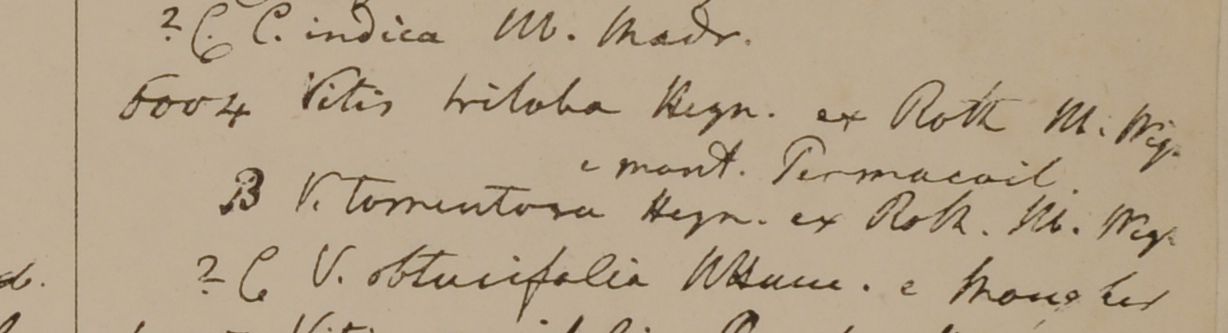 ? C. C. indica M. Madr.
6004 Vitis triloba Heyn. ex Roth M. Wig.
e mont. Permacoil.
B V. tomentosa Heyn. ex Roth. M. Wig.
? C V. obtusifolia e
Vitis